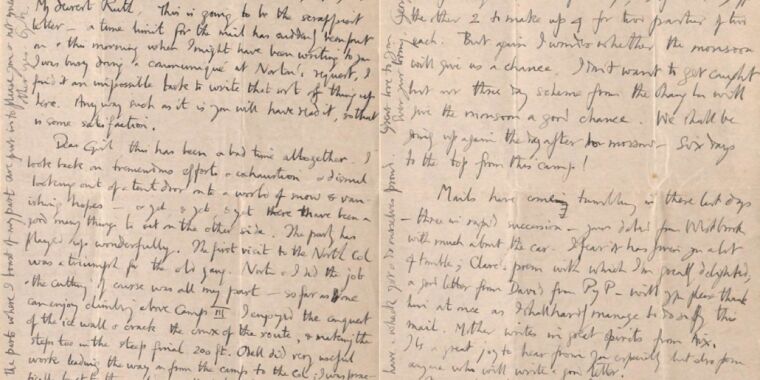 My dearest Ruth, This is going to be the scrappiest
letter – a time limit for the mail has suddenly been put
on & this morning when I might have been writing to you
I was busy doing a communiqué at Norton's request. I
find it an impossible task to write that sort of thing up
here. Any way such as it is you will have read it, so that
is some satisfaction.
Dear Girl this has been a bad time altogether. I
look back on tremendous efforts & exhaustion & dismal
looking out of a tent door onto a world of snow & van-
ishing hopes – & yet, & yet, & yet there have been a
good many things to set on the other side. The party has
played up wonderfully. The first visit to the North Col
was a triumph for the old gang. Norton & I did the job
& the cutting of course was all my part – so far as one
can enjoy climbing above Camp III I enjoyed the conquest
of the ice wall & crack the crux of the route, & making the
steps too in the steep final 200 ft. Odell did very useful
work leading the way on from the camp to the Col; I was prac-
the other 2 to make up for two parties of two
each. But again I wonder whether the monsoon
will give us a chance. I don't want to get caught
but our three day scheme from the Chang La will
give the monsoon a good chance. We shall be
going up again the day after to morrow – Six days
to the top from this camp!
Mails have coming tumbling in these last days
– three in rapid succession – yours dated from Westbrook
with much about the car – I fear it has given you a lot
of trouble; Clare's poem with which I'm greatly delighted,
a good letter from David from PyP – will you please thank
him at once as I shall hardly manage to do so by this
mail. Mother writes in great spirits from Aix.
It's a great joy to hear from you especially but also from
anyone who will write a good letter.